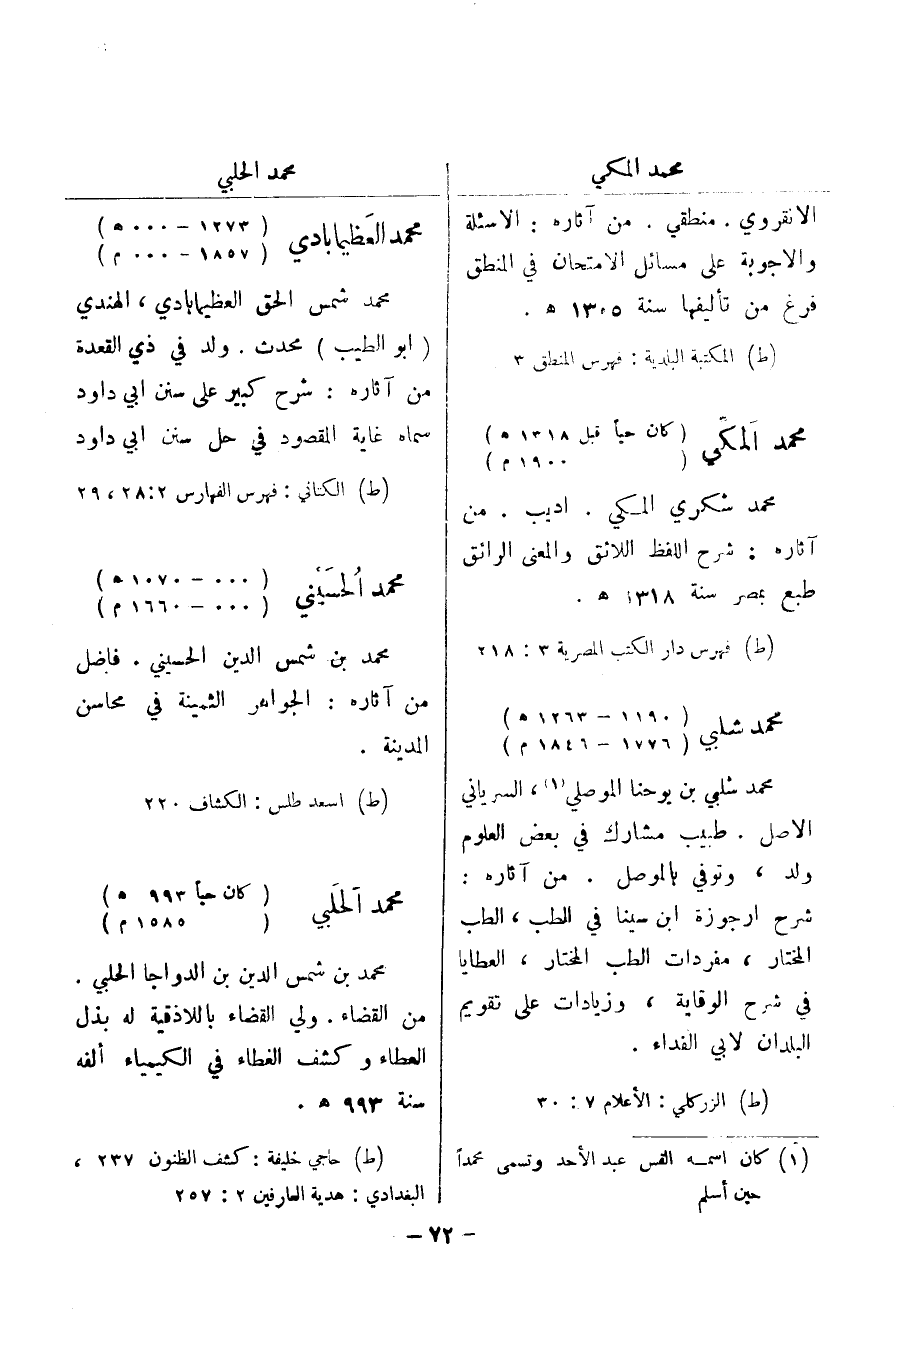 محمد المكي
الانقروي . منطقي . من آثاره : الاسئلة
والاجوبة على مسائل الامتحان في المنطق
فرغ من تأليفها سنة ١٣٠٥ ه .
(ط) المكتبة البلدية : فهرس المنطق ٣
محمد اَلمكّي ( كان حياً قبل ١٣١٨ ه )
( ١٩٠٠ م )
محمد شكري المكي . اديب . من
آثاره : شرح اللفظ اللائق والمعنى الرائق
طبع بمصر سنة ١٣١٨ ه .
(ط) فهرس دار الكتب المصرية ٣ : ٢١٨
محمد شلبي ( ١١٩٠ – ١٢٦٣ ه )
( ١٧٧٦ – ١٨٤٦ م )
محمد شلبي بن يوحنا الموصلي(١) ، السرياني
الاصل . طبيب مشارك في بعض العلوم
ولد ، وتوفي بالموصل . من آثاره :
شرح ارجوزة ابن سينا في الطب ، الطب
المختار ، مفردات الطب المختار ، العطايا
في شرح الوقاية ، وزيادات على تقويم
البلدان لابي الفداء .
(ط) الزركلي : الأعلام ٧ : ٣٠
(١) كان اسمه القس عبد الأحد وتسمى محمداً
حين أسلم
محمد الحلبي
محمد العَظيمابادي ( ١٢٧٣ – ٠٠٠ ه )
( ١٨٥٧ – ٠٠٠ م )
محمد شمس الحق العظيمابادي ، الهندي
( ابو الطيب ) محدث . ولد في ذي القعدة
من آثاره : شرح كبير على سنن ابي داود
سماه غاية المقصود في حل سنن ابي داود
(ط) الكتاني : فهرس الفهارس ٢ : ٢٨ ، ٢٩
محمد اُلحسَيْني ( ٠٠٠ – ١٠٧٠ ه )
( ٠٠٠ – ١٦٦٠ م )
محمد بن شمس الدين الحسيني . فاضل
من آثاره : الجواهر الثمينة في محاسن
المدينة .
(ط) اسعد طلس : الكشاف ٢٢٠
محمد اَلحَلَبي ( كان حياً ٩٩٣ ه )
( ١٥٨٥ م )
محمد بن شمس الدين بن الدواجا الحلبي .
من القضاء . ولي القضاء باللاذقية له بذل
العطاء و كشف الغطاء في الكيمياء ألفه
سنة ٩٩٣ ه .
(ط) حاجي خليفة : كشف الظنون ٢٣٧ ،
البغدادي : هدية العارفين ٢ : ٢٥٧
– ٧٢ –